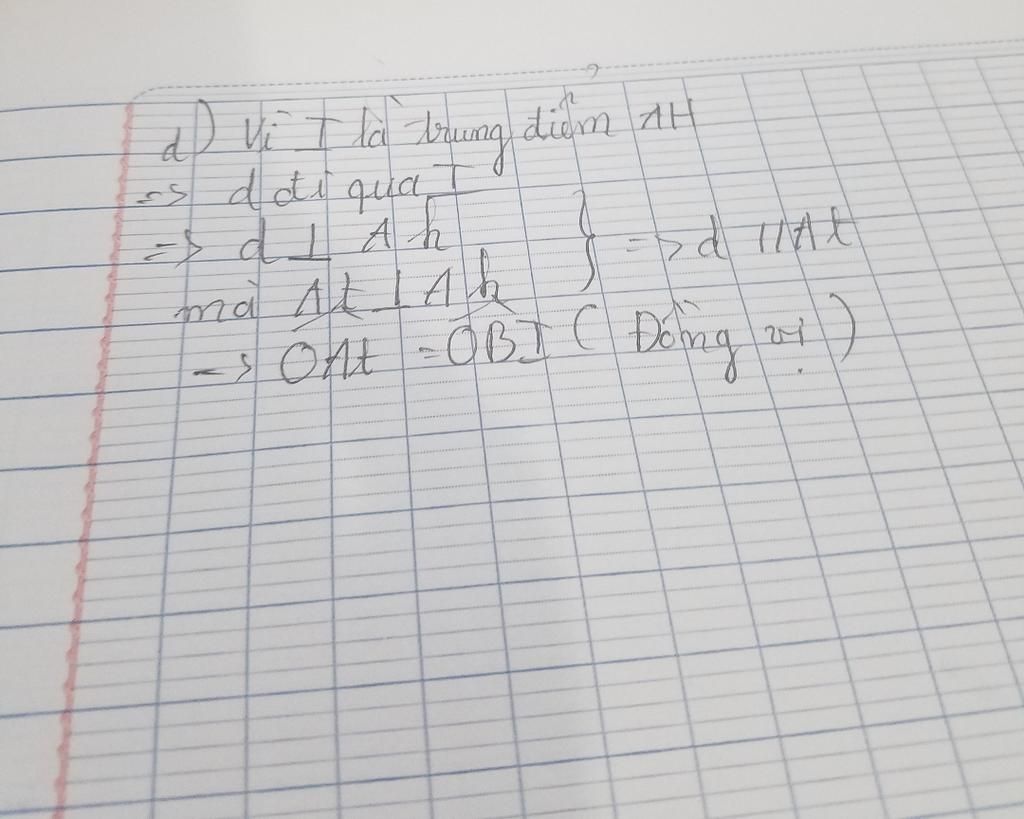 d) Vì I là trung điểm AH
=> d đi qua I
=> d ⊥ Ah } => d // At
mà At ⊥ Ah
=> OAt = OBI ( Đồng vị )